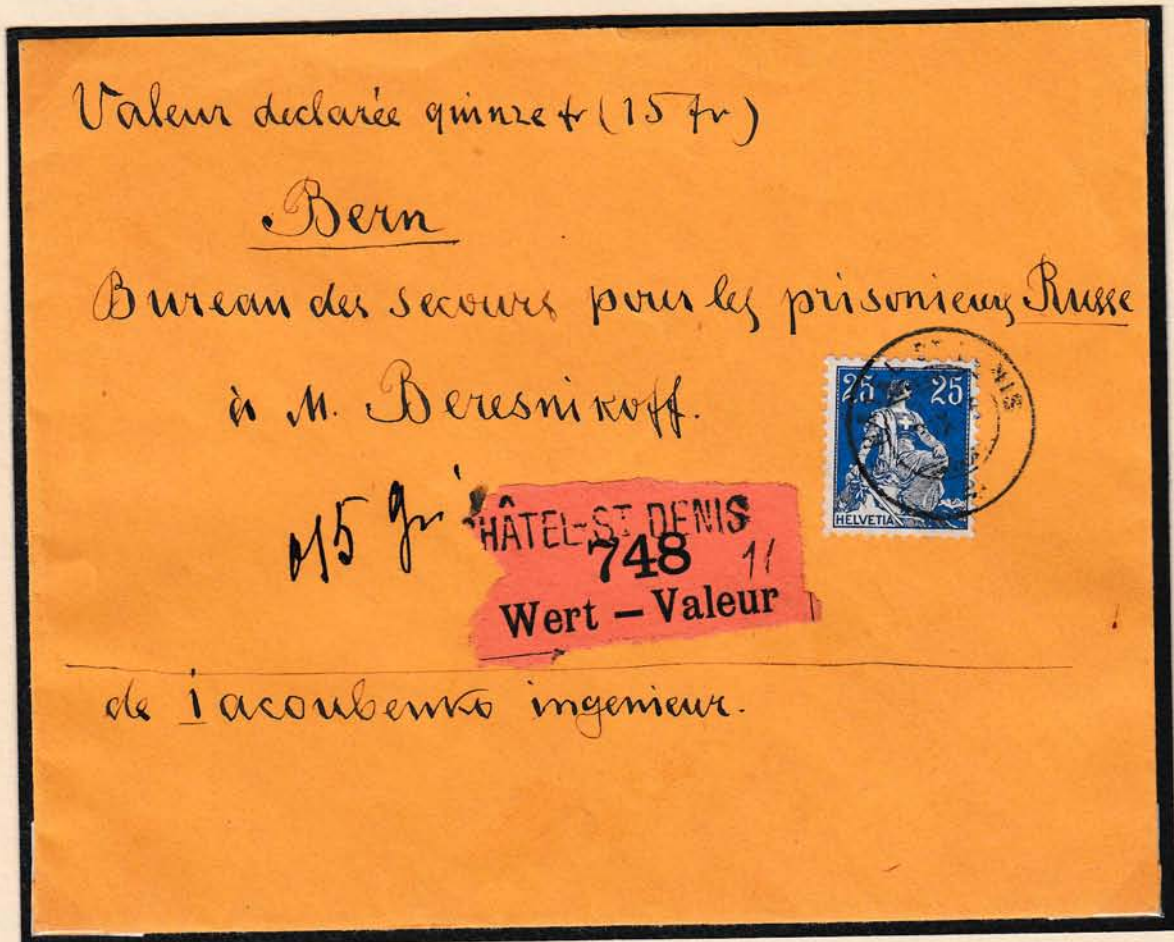 Valeur declarée quinze fr (15 fr)
Bern
Bureau des secours pour les prisonieux Russe
à M. Beresnikoff.
25 25
HELVETIA
15 gr
HÂTEL-ST DENIS
748 11
Wert – Valeur
de iacoubenko ingenieur.